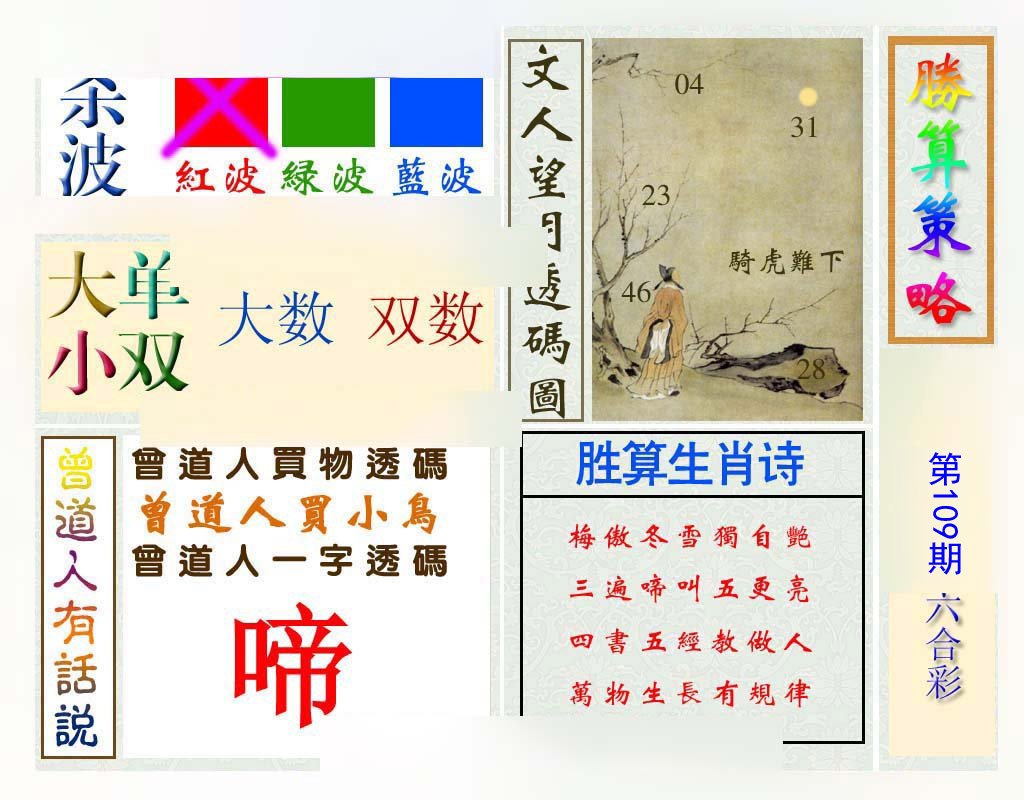 波
紅波 綠波 藍波
大单
小双
大数 双数
曾道人有話説
曾道人買物透碼
曾道人買小鳥
曾道人一字透碼
啼
文人望月透碼圖
04
31
23
騎虎難下
46
28
胜算生肖诗
梅傲冬雪獨自艷
三遍啼叫五更亮
四書五經教做人
萬物生長有規律
勝算策略
第109期
六合彩